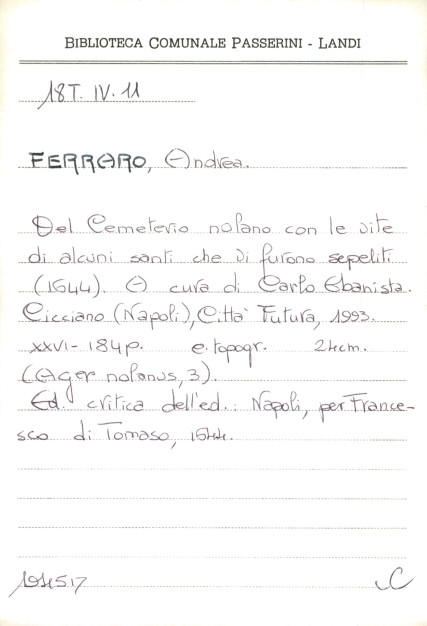 BIBLIOTECA COMUNALE PASSERINI - LANDI
18T. IV. 11
FERRARO, Andrea.
Del Cemeterio nolano con le vite
di alcuni santi che vi furono sepeliti
(1644). A cura di Carlo Ebanista.
Cicciano (Napoli), Città Futura, 1993.
XXVI-184p. e. topogr. 24cm.
(Ager nolanus, 3).
Ed. critica dell'ed.: Napoli, per France-
sco di Tomaso, 1644.
C